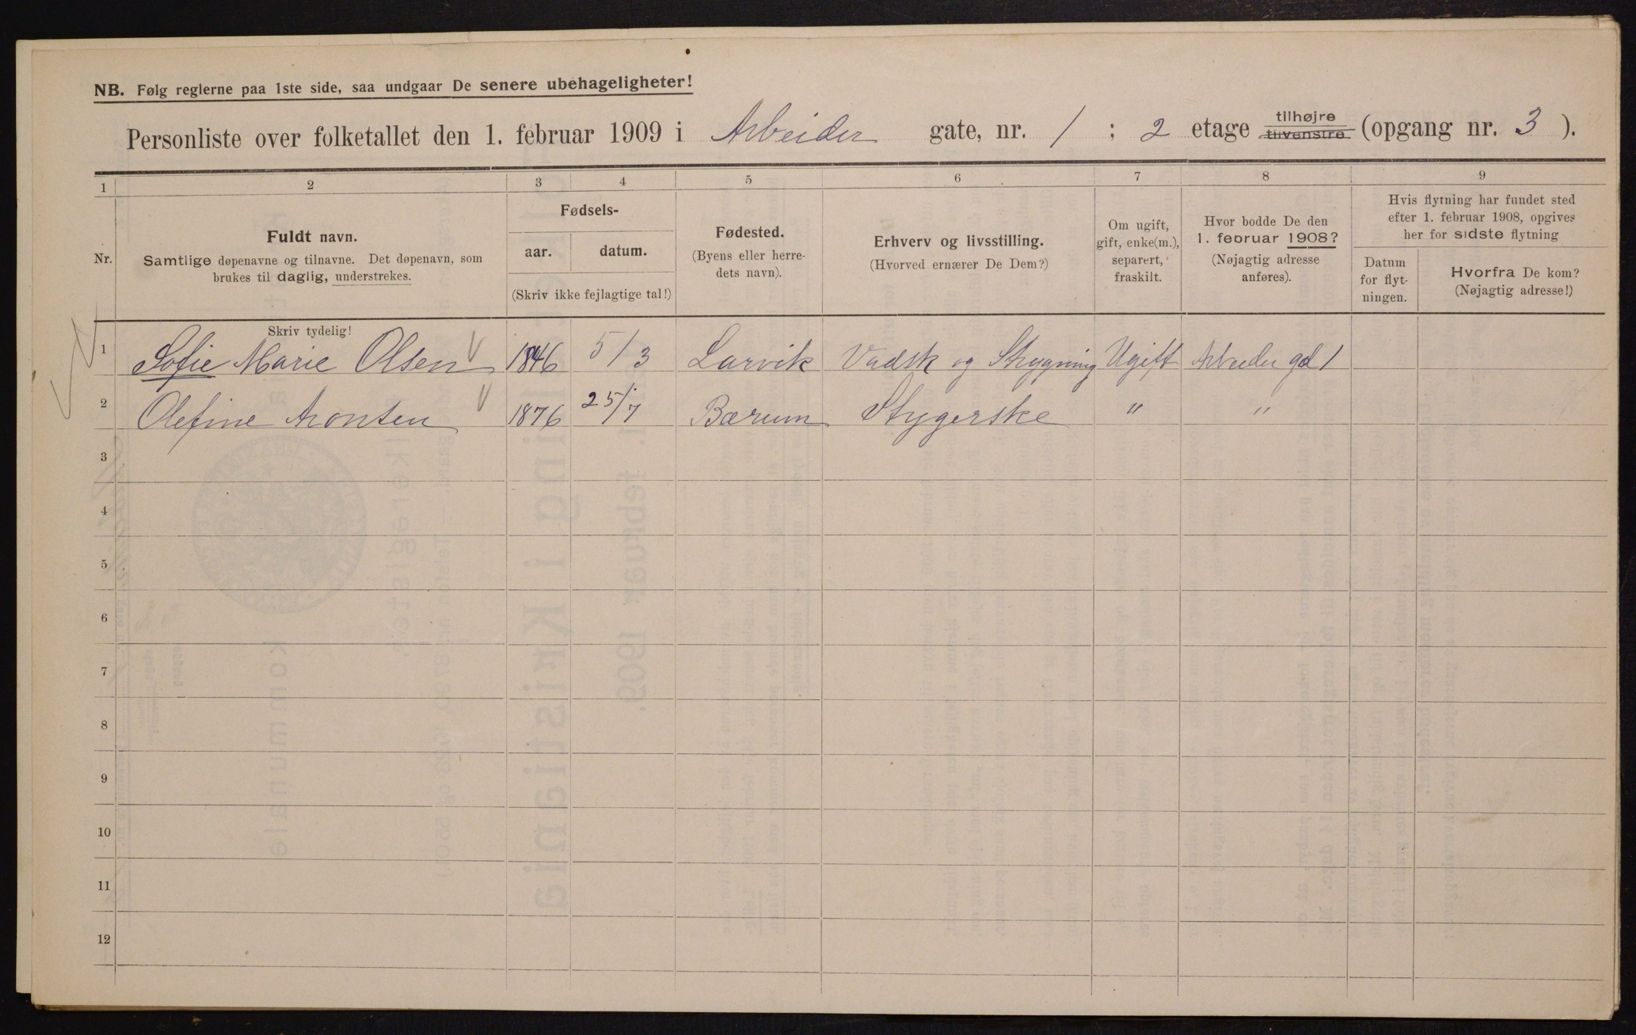 NB. Følg reglerne paa 1ste side, saa undgaar De senere ubehageligheter!
Personliste over folketallet den 1. februar 1909 i Arbeider gate, nr. 1 ; 2 etage tilhøjre tilvenstre (opgang nr. 3 ).
1 2 3 4 5 6 7 8 9
Nr.
Fuldt navn.
Samtlige døpenavne og tilnavne. Det døpenavn, som
brukes til daglig, understrekes.
Skriv tydelig!
Fødsels-
aar. datum.
(Skriv ikke fejlagtige tal!)
Fødested.
(Byens eller herre-
dets navn).
Erhverv og livsstilling.
(Hvorved ernærer De Dem?)
Om ugift,
gift, enke(m.),
separert,
fraskilt.
Hvor bodde De den
1. februar 1908?
(Nøjagtig adresse
anføres).
Hvis flytning har fundet sted
efter 1. februar 1908, opgives
her for sidste flytning
Datum
for flyt-
ningen.
Hvorfra De kom?
(Nøjagtig adresse!)
1 Sofie Marie Olsen 1846 5/3 Larvik Vadsk og Strygning Ugift Arbeider gd 1
2 Olefine Aronsen 1876 25/7 Bærum Strygerske " "
3
4
5
6
7
8
9
10
11
12